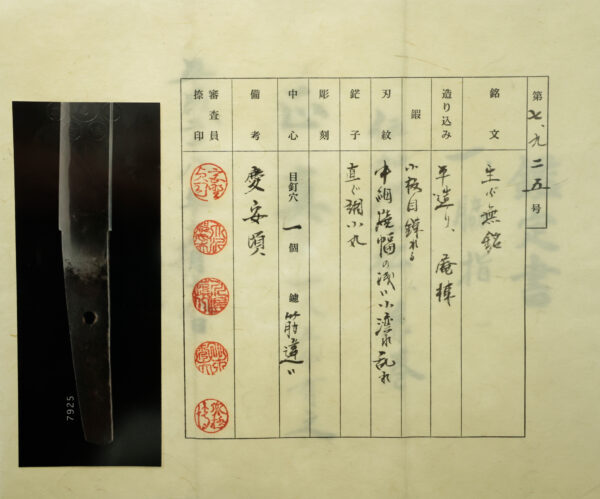 第七、九二五号
銘文 生ぶ無銘
造り込み 平造り、庵棟
鍛 小板目錬れる
刃紋 焼幅の浅い小湾れ乱れ
鋩子 直ぐ調小丸
彫刻
中心 目釘穴 一個 鑢 筋違い
備考 慶安頃
審査員捺印
7925